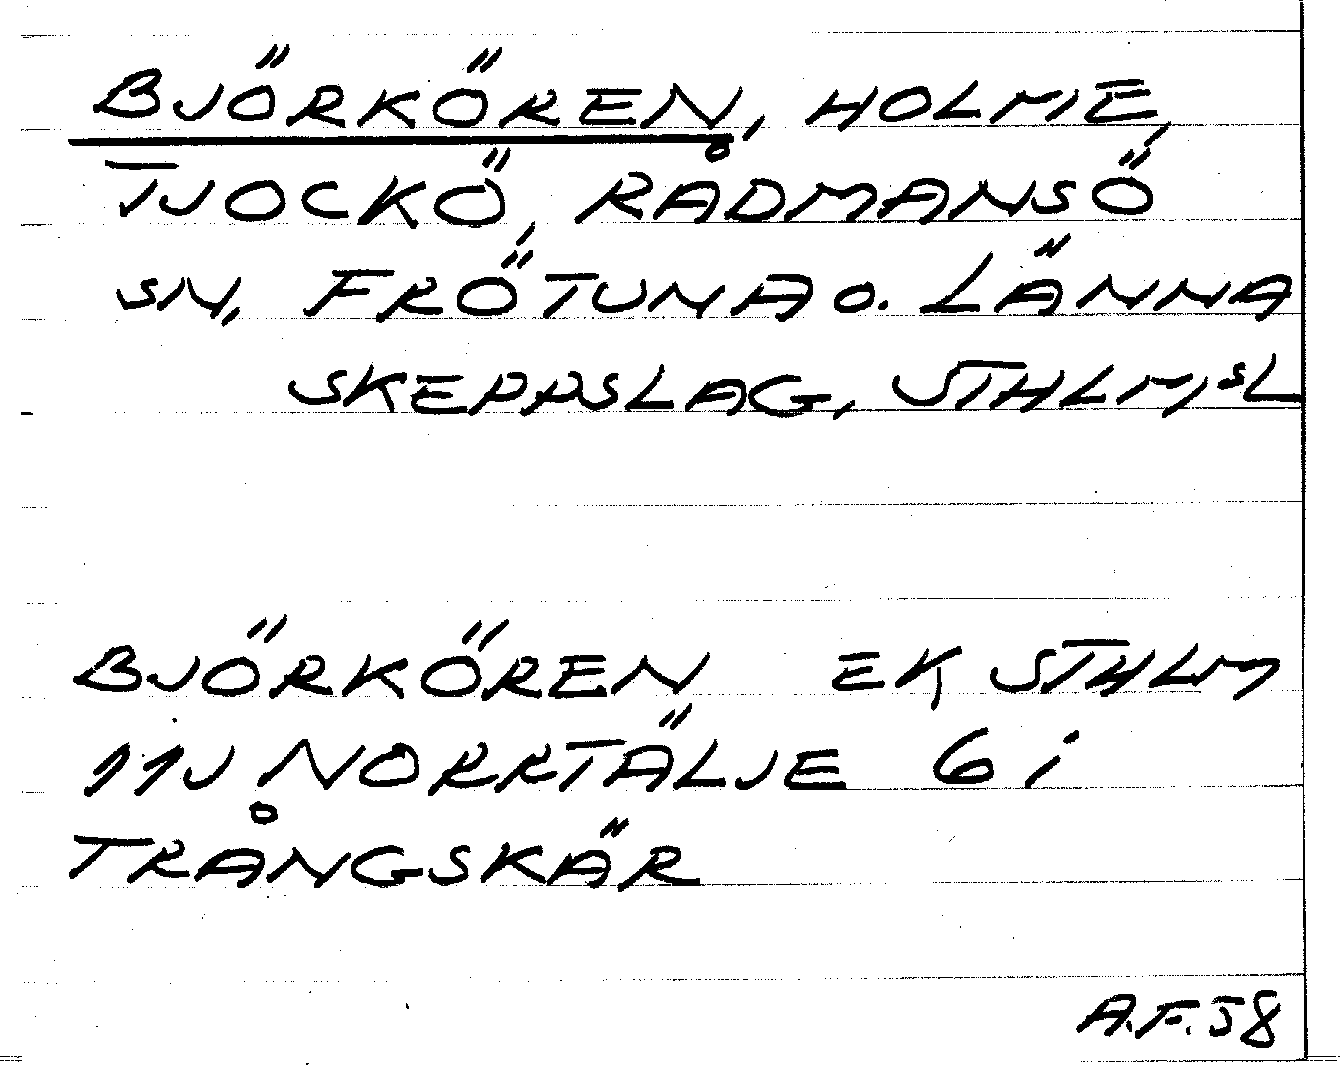 BJÖRKÖREN, HOLME,
TJOCKÖ, RÅDMANSÖ
SN, FRÖTUNA O. LÄNNA
SKEPPSLAG, STHLMSL
BJÖRKÖREN EK STHLM
11J NORRTÄLJE 6 i
TRÅNGSKÄR
A.F. 58